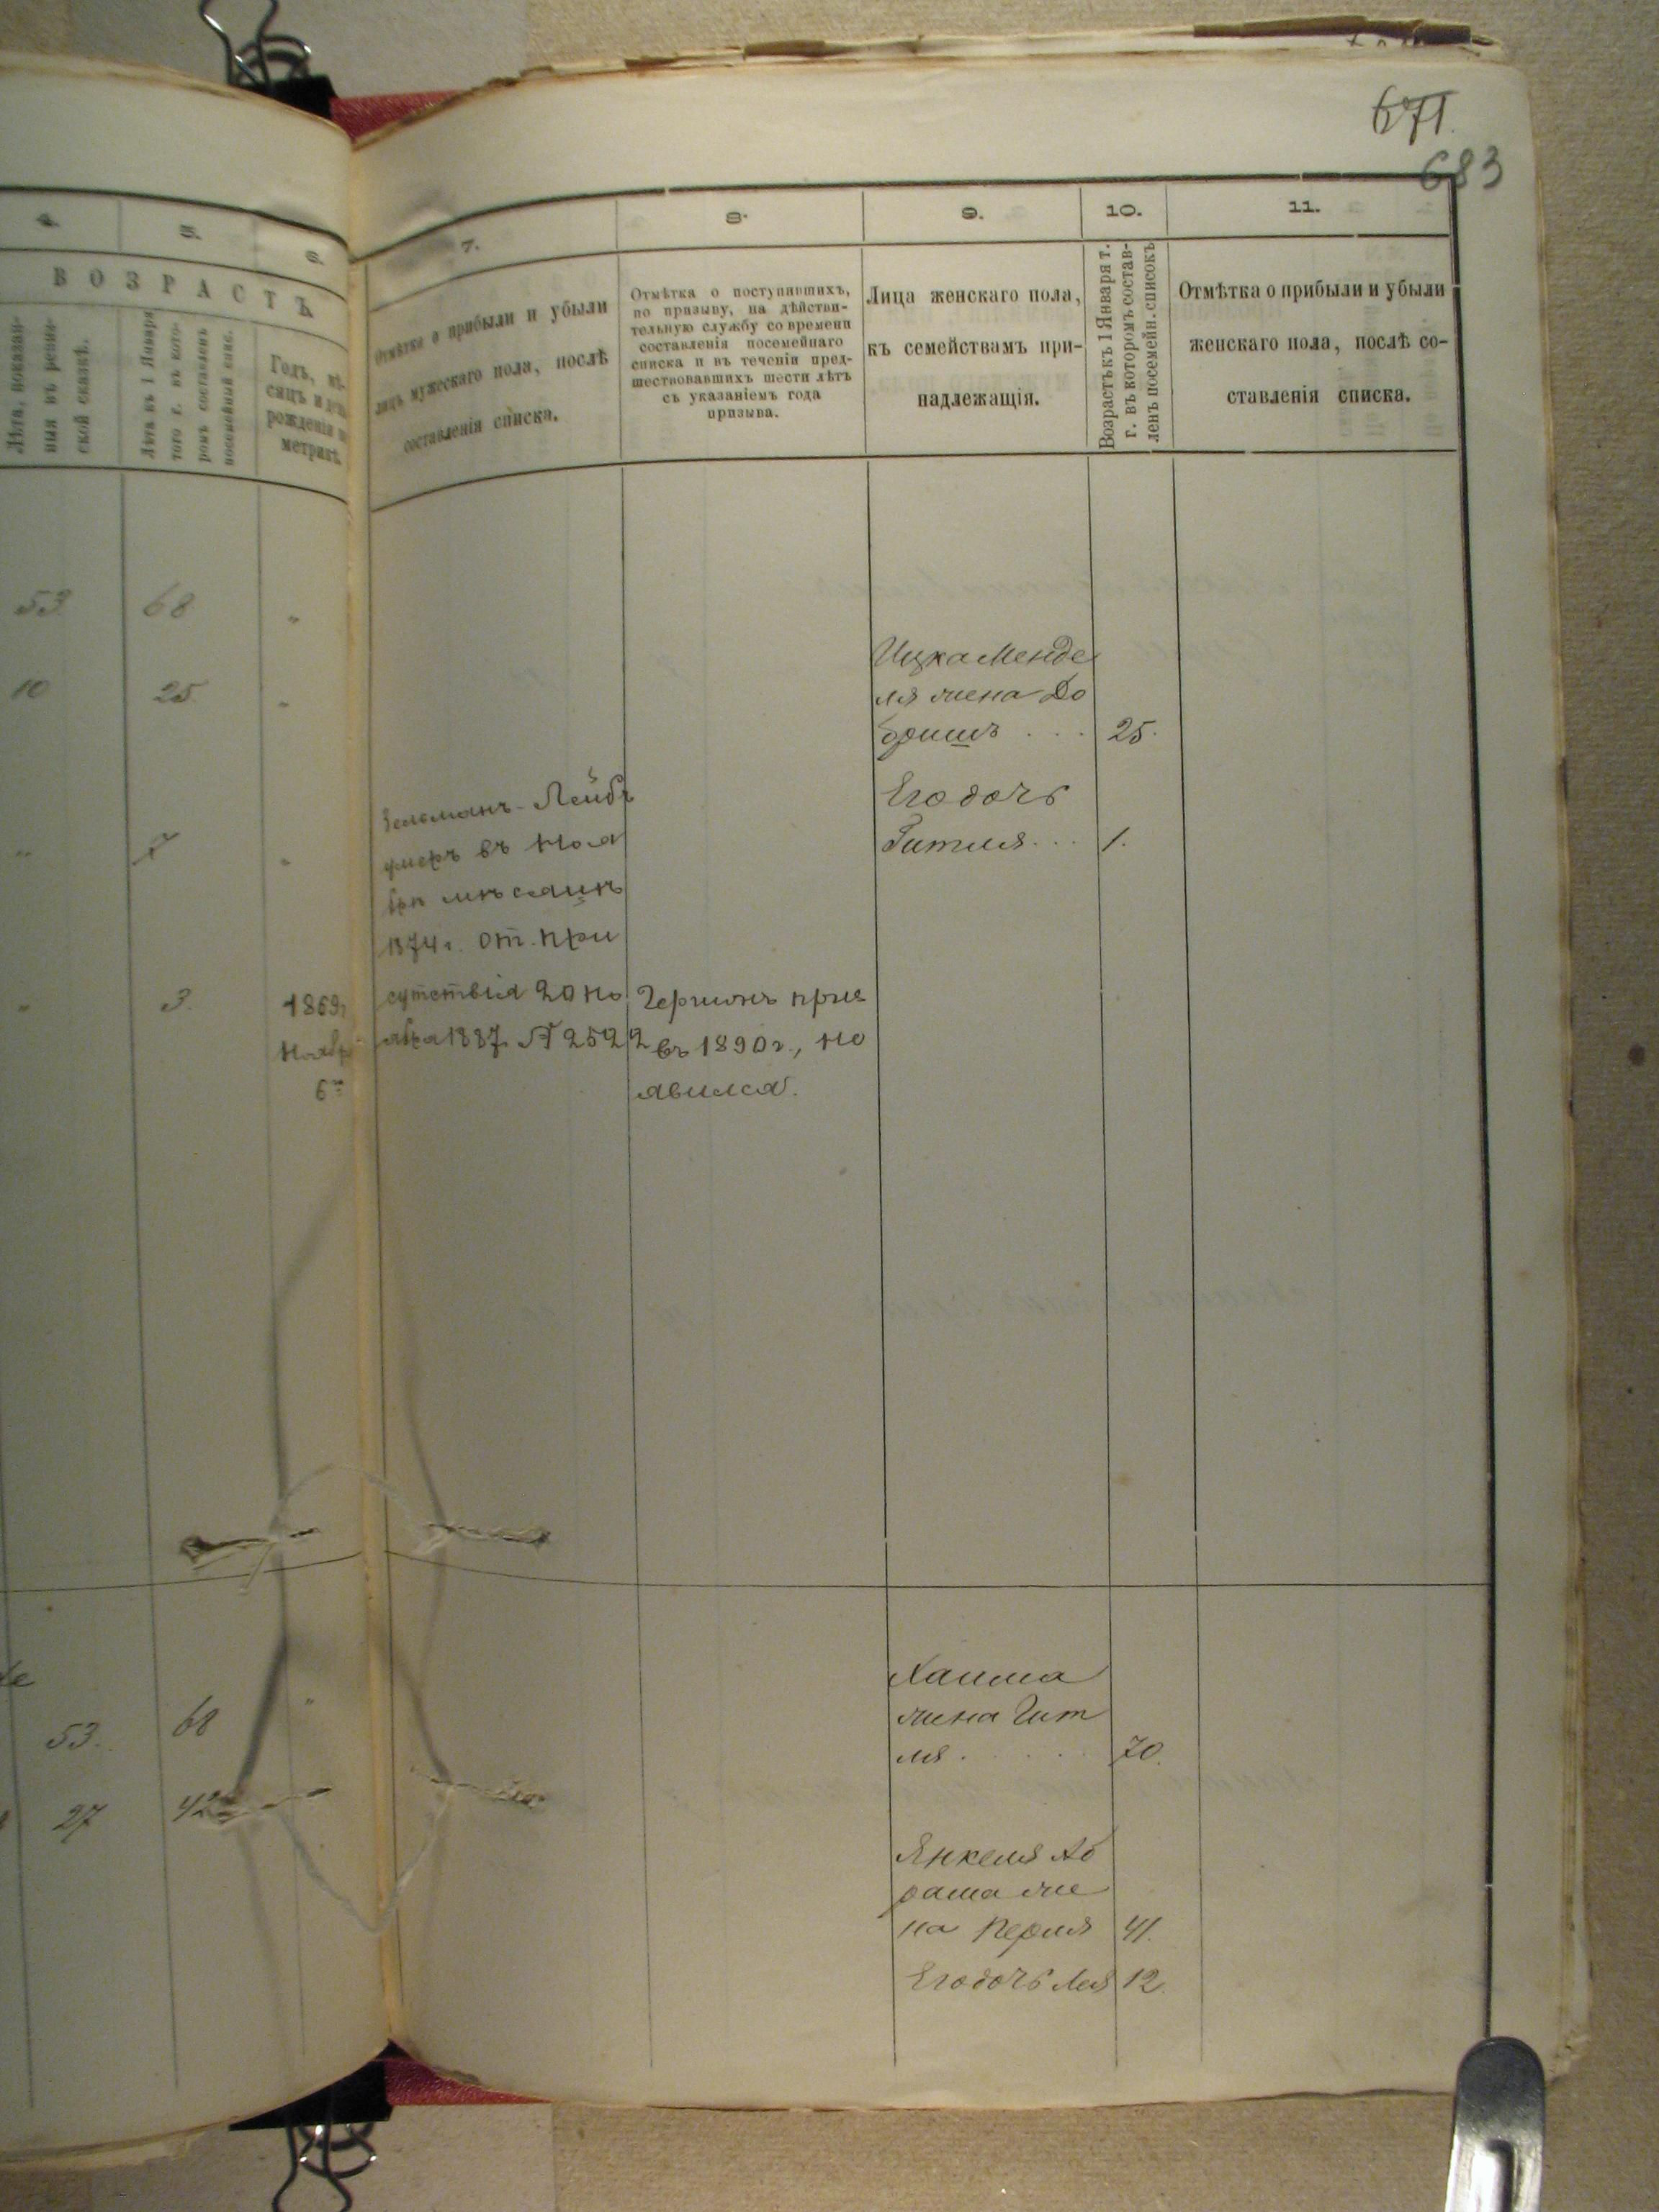 671.
683
4.
5.
6.
7.
8.
9.
10.
11.
ВОЗРАСТЪ
Лѣта, показан-
ныя въ ревиз-
ской сказкѣ.
Лѣта къ 1 Января
того г. въ кото-
ромъ составленъ
посемейный спис.
Годъ, мѣ-
сяцъ и день
рожденія по
метрикѣ.
Отмѣтка о прибыли и убыли
лицъ мужескаго пола, послѣ
составленія списка.
Отмѣтка о поступившихъ,
по призыву, на дѣйстви-
тельную службу со времени
составленія посемейнаго
списка и въ теченіи пред-
шествовавшихъ шести лѣтъ
съ указаніемъ года
призыва.
Лица женскаго пола,
къ семействамъ при-
надлежащія.
Возрастъ къ 1 Января т.
г. въ которомъ состав-
ленъ посемейн. списокъ
Отмѣтка о прибыли и убыли
женскаго пола, послѣ со-
ставленія списка.
53 68 "
10 25 "
" 7 "
" 3. 1869г
Ноябр
6го
Зельманъ-Лейбъ
умеръ въ Ноя
брѣ мѣсяцѣ
1874 г. От. при
сутствія 20 Но
ября 1887 № 2522
Гершонъ приз
въ 1890 г., не
явился.
Ицка Менде
ля жена До
бришъ . . . 25.
Его дочь
Гитля . . . 1.
53. 68 "
27 42
Хаима
жена Гит
ля . . . . . 70.
Янкеля Аб
рама же
на Перля 41.
Его дочь Лея 12.